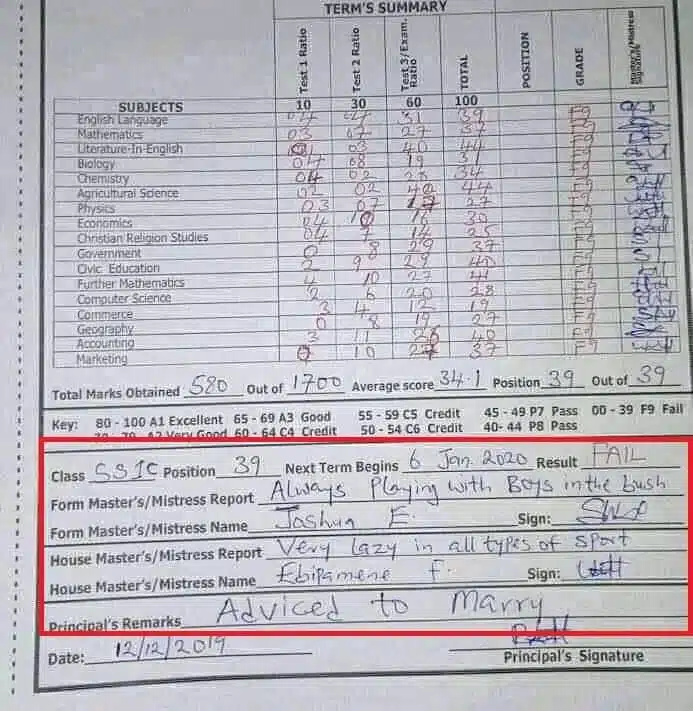 TERM'S SUMMARY
SUBJECTS Test 1 Ratio Test 2 Ratio Test 3/Exam. Ratio TOTAL POSITION GRADE Master's/Mistress Signature
10 30 60 100
English Language 04 04 31 39 F9
Mathematics 03 07 27 37 F9
Literature-In-English 01 03 40 44 F9
Biology 04 08 19 31 F9
Chemistry 04 02 28 34 F9
Agricultural Science 02 02 40 44 F9
Physics 03 07 17 27 F9
Economics 04 10 16 30 F9
Christian Religion Studies 04 7 14 25 F9
Government 0 8 29 37 F9
Civic Education 2 9 29 40 F9
Further Mathematics 4 10 27 41 F9
Computer Science 2 6 20 28 F9
Commerce 3 4 12 19 F9
Geography 0 8 19 27 F9
Accounting 3 11 26 40 F9
Marketing 0 10 27 37 F9
Total Marks Obtained 580 Out of 1700 Average score 34.1 Position 39 Out of 39
Key: 80 - 100 A1 Excellent 65 - 69 A3 Good 55 - 59 C5 Credit 45 - 49 P7 Pass 00 - 39 F9 Fail
70 - 79 A2 Very Good 60 - 64 C4 Credit 50 - 54 C6 Credit 40- 44 P8 Pass
Class SS1C Position 39 Next Term Begins 6 Jan. 2020 Result FAIL
Form Master's/Mistress Report Always Playing with Boys in the bush
Form Master's/Mistress Name Joshua E. Sign:
House Master's/Mistress Report Very lazy in all types of sport
House Master's/Mistress Name Ebipamene F. Sign:
Principal's Remarks Adviced to Marry
Date: 12/12/2019
Principal's Signature